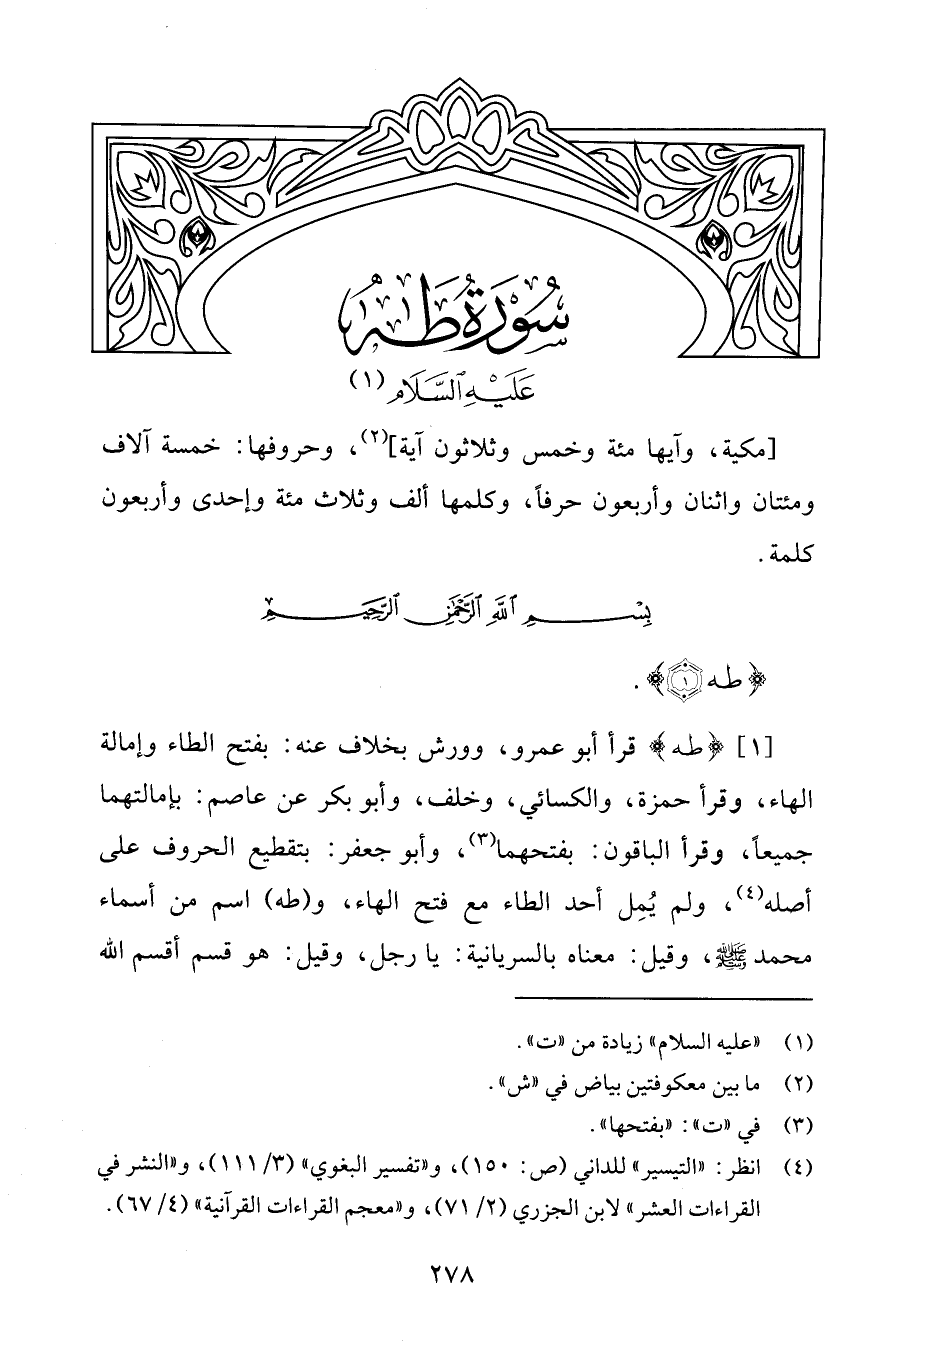 سُوْرَةُ طٰهٰ
عَلَيْهِ السَّلَام (١)
[مكية، وآيها مئة وخمس وثلاثون آية](٢)، وحروفها: خمسة آلاف
ومئتان واثنان وأربعون حرفاً، وكلمها ألف وثلاث مئة وإحدى وأربعون
كلمة.
بِسْمِ اللَّهِ الرَّحْمَٰنِ الرَّحِيمِ
﴿طه ١﴾.
[١] ﴿طه﴾ قرأ أبو عمرو، وورش بخلاف عنه: بفتح الطاء وإمالة
الهاء، وقرأ حمزة، والكسائي، وخلف، وأبو بكر عن عاصم: بإمالتهما
جميعاً، وقرأ الباقون: بفتحهما(٣)، وأبو جعفر: بتقطيع الحروف على
أصله(٤)، ولم يُمِل أحد الطاء مع فتح الهاء، و(طه) اسم من أسماء
محمد ﷺ، وقيل: معناه بالسريانية: يا رجل، وقيل: هو قسم أقسم الله
(١) «عليه السلام» زيادة من «ت».
(٢) ما بين معكوفتين بياض في «ش».
(٣) في «ت»: «بفتحها».
(٤) انظر: «التيسير» للداني (ص: ١٥٠)، و«تفسير البغوي» (٣/ ١١١)، و«النشر في
القراءات العشر» لابن الجزري (٢/ ٧١)، و«معجم القراءات القرآنية» (٤/ ٦٧).
٢٧٨